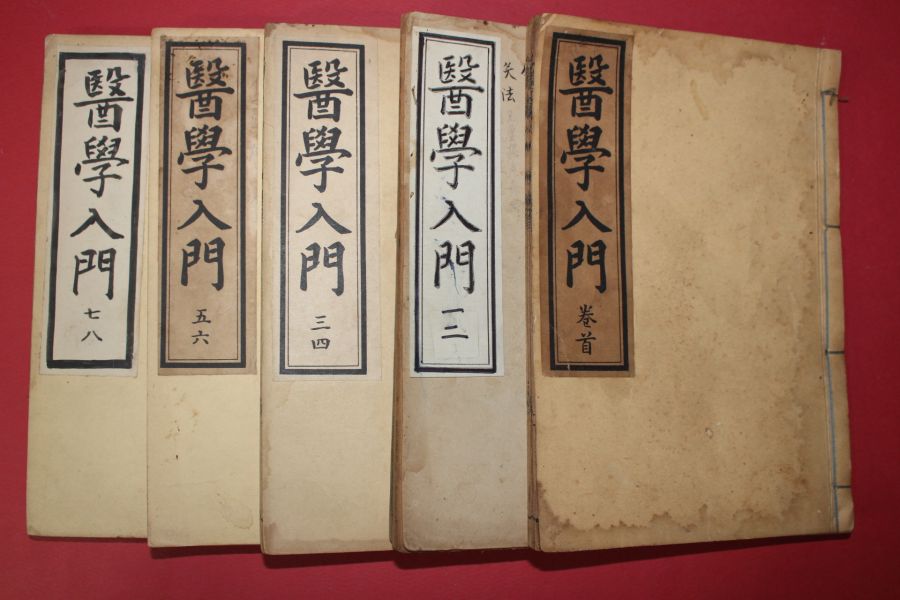 醫學入門
卷首
醫學入門
一二
醫學入門
三四
醫學入門
五六
醫學入門
七八